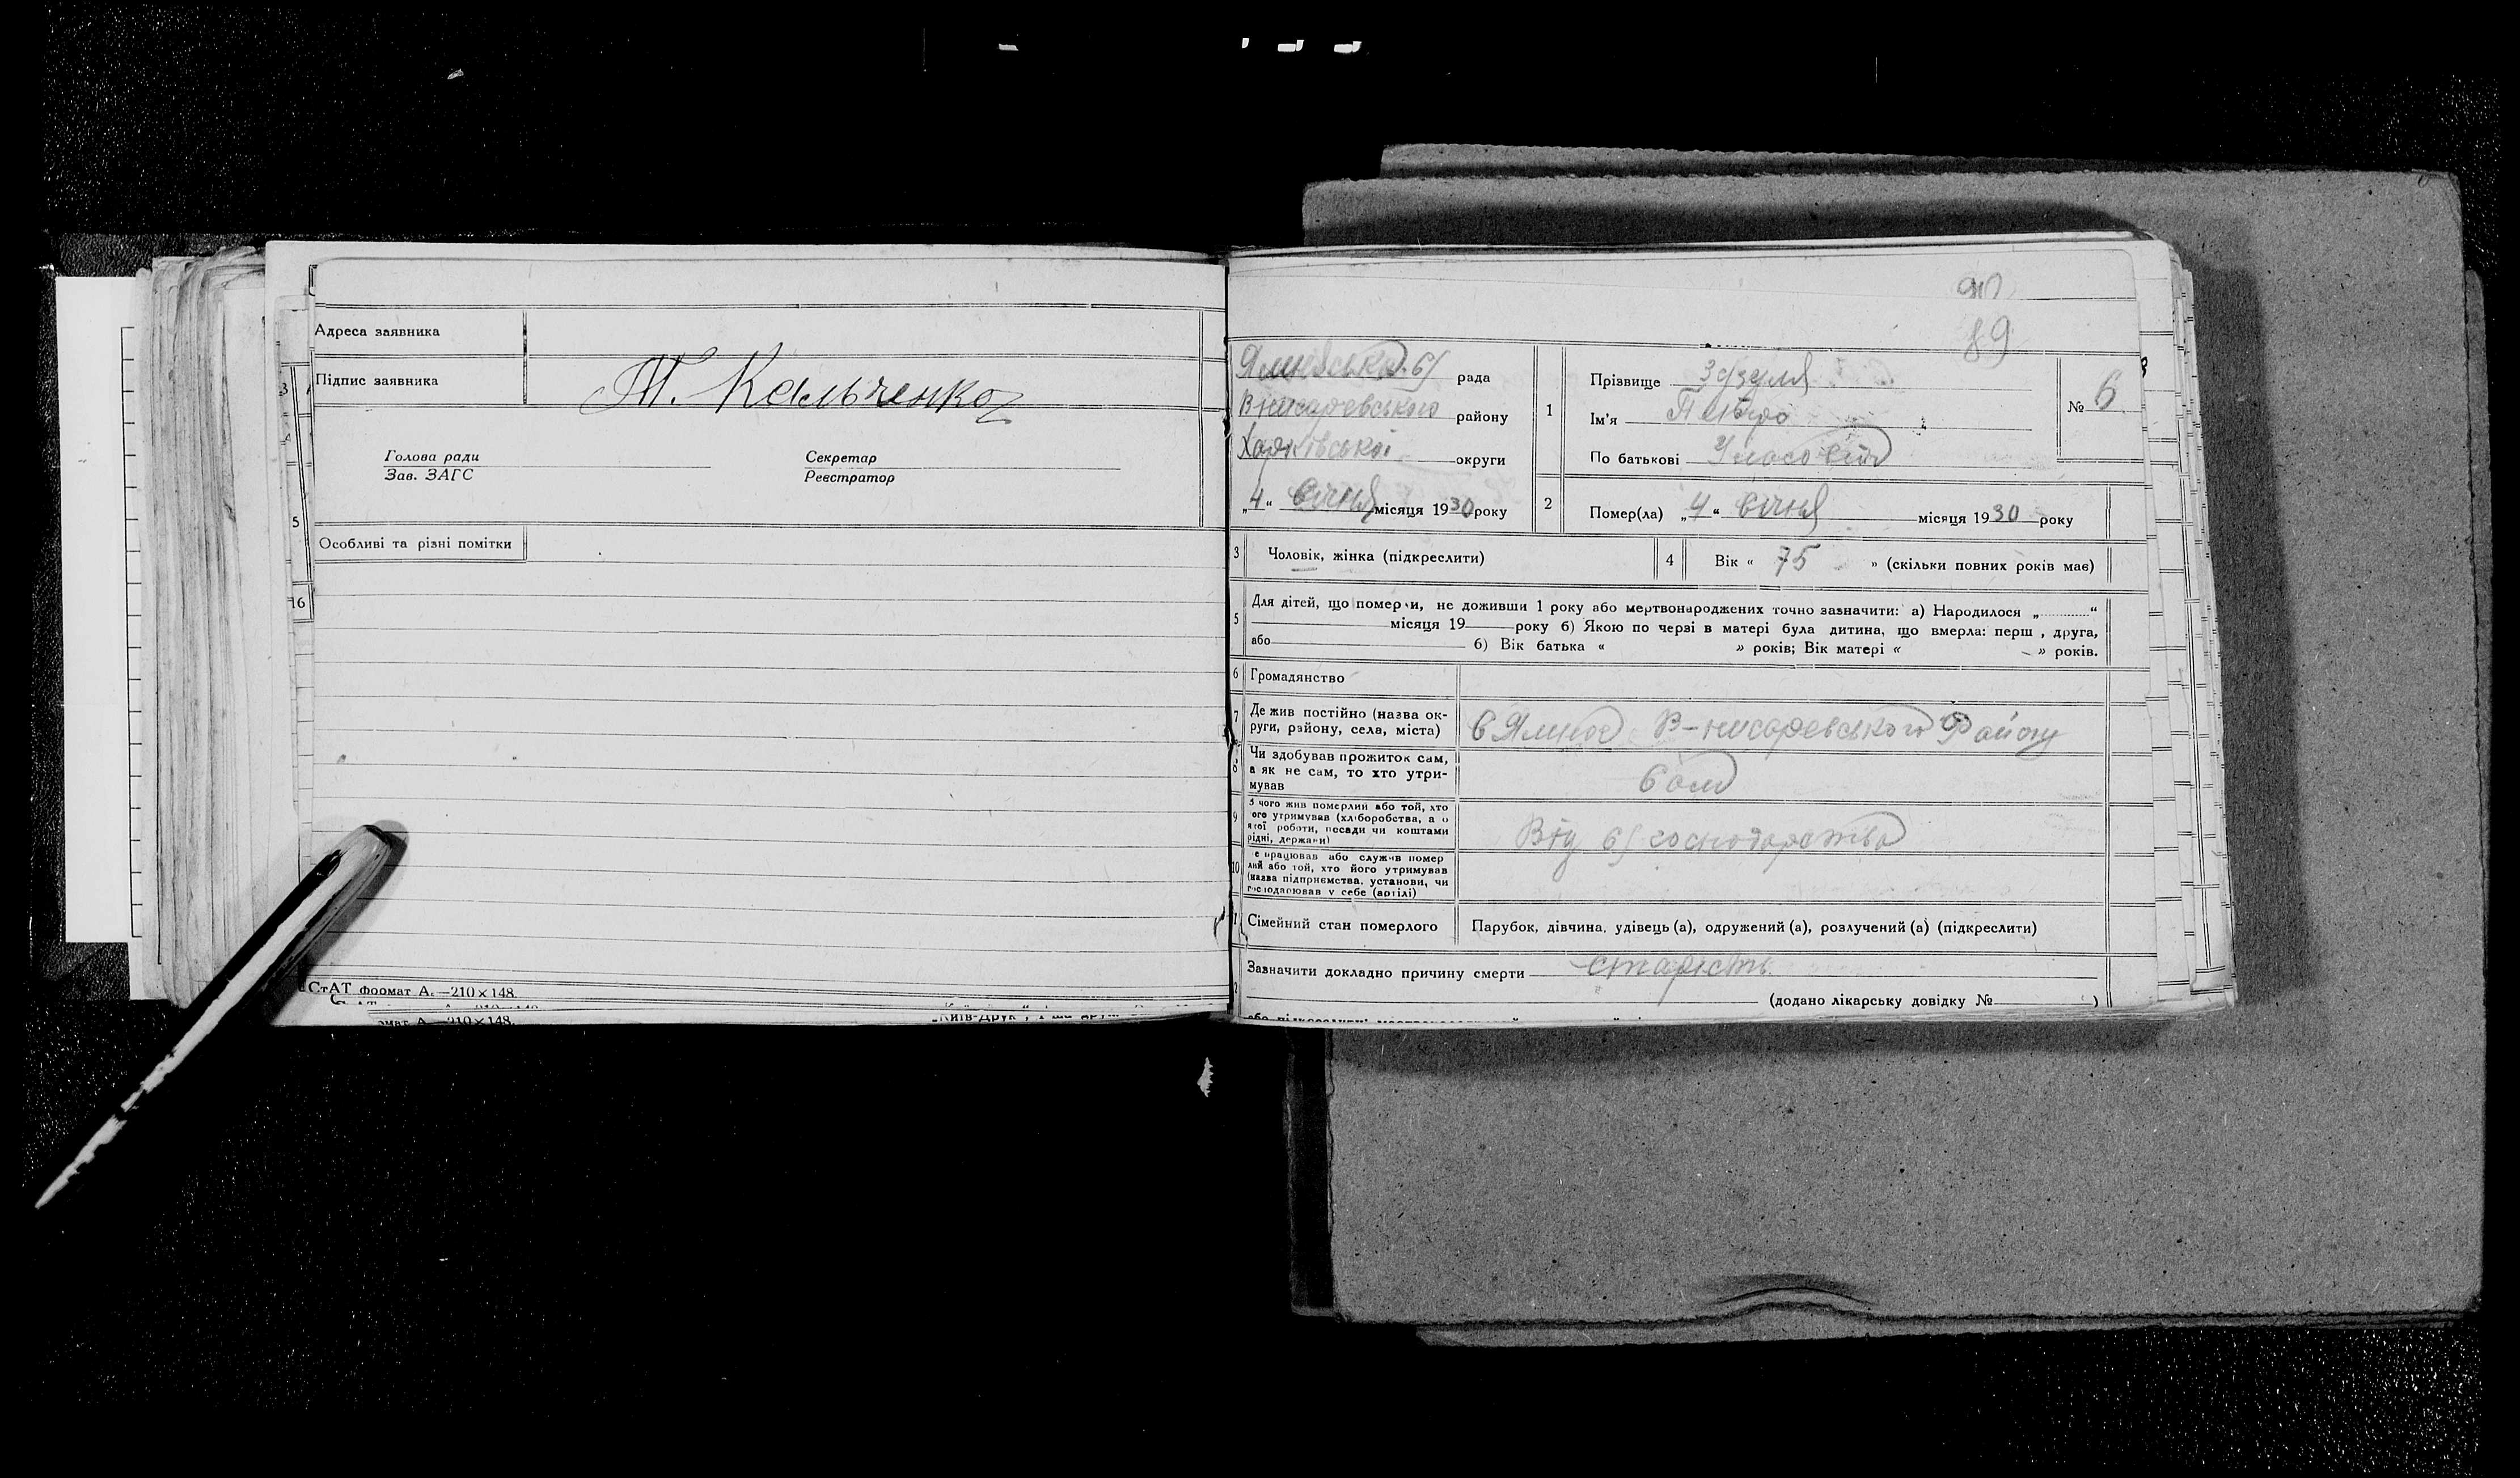 Адреса заявника
Підпис заявника
Т. Кальченко
Голова ради
Зав. ЗАГС
Секретар
Реєстратор
5
Особливі та різні помітки
16
СтАТ формат А. —210×148.
А —210×148.
90
89
Ямнівська с/ рада
Вписаревського району
Харківської округи
„4“ січня місяця 1930 року
1
Прізвище Зозуля
Ім'я Петро
По батькові Уласовіч
№ 6
2
Помер(ла) „4“ січня місяця 1930 року
3
Чоловік, жінка (підкреслити)
4
Вік « 75 » (скільки повних років має)
5
Для дітей, що померли, не доживши 1 року або мертвонароджених точно зазначити: а) Народилося „ “
місяця 19 року б) Якою по черзі в матері була дитина, що вмерла: перш , друга,
або б) Вік батька « » років; Вік матері « » років.
6
Громадянство
7
Де жив постійно (назва ок-
руги, району, села, міста)
с Ямное В-писаревського Району
8
Чи здобував прожиток сам,
а як не сам, то хто утри-
мував
сам
9
З чого жив померлий або той, хто
ого утримував (хліборобства, а о
якої роботи, посади чи коштами
рідні, держави)
Від с/ господарства
10
е працював або служив помер
лий або той, хто його утримував
(назва підприємства, установи, чи
господарював у себе (артілі)
Сімейний стан померлого
Парубок, дівчина, удівець (а), одружений (а), розлучений (а) (підкреслити)
Зазначити докладно причину смерти старість
(додано лікарську довідку № )